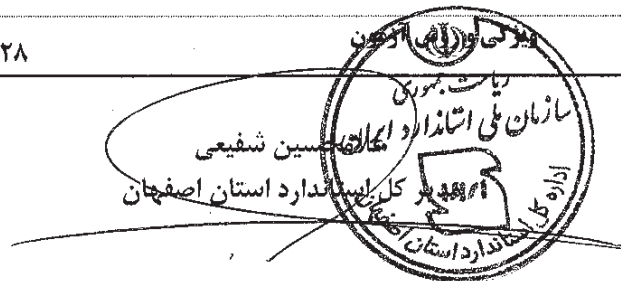 ویژگی و روش آزمون
۲۸
ریاست جمهوری
سازمان ملی استاندارد ایران
حسین شفیعی
مدیر کل استاندارد استان اصفهان
اداره کل استاندارد استان اصفهان